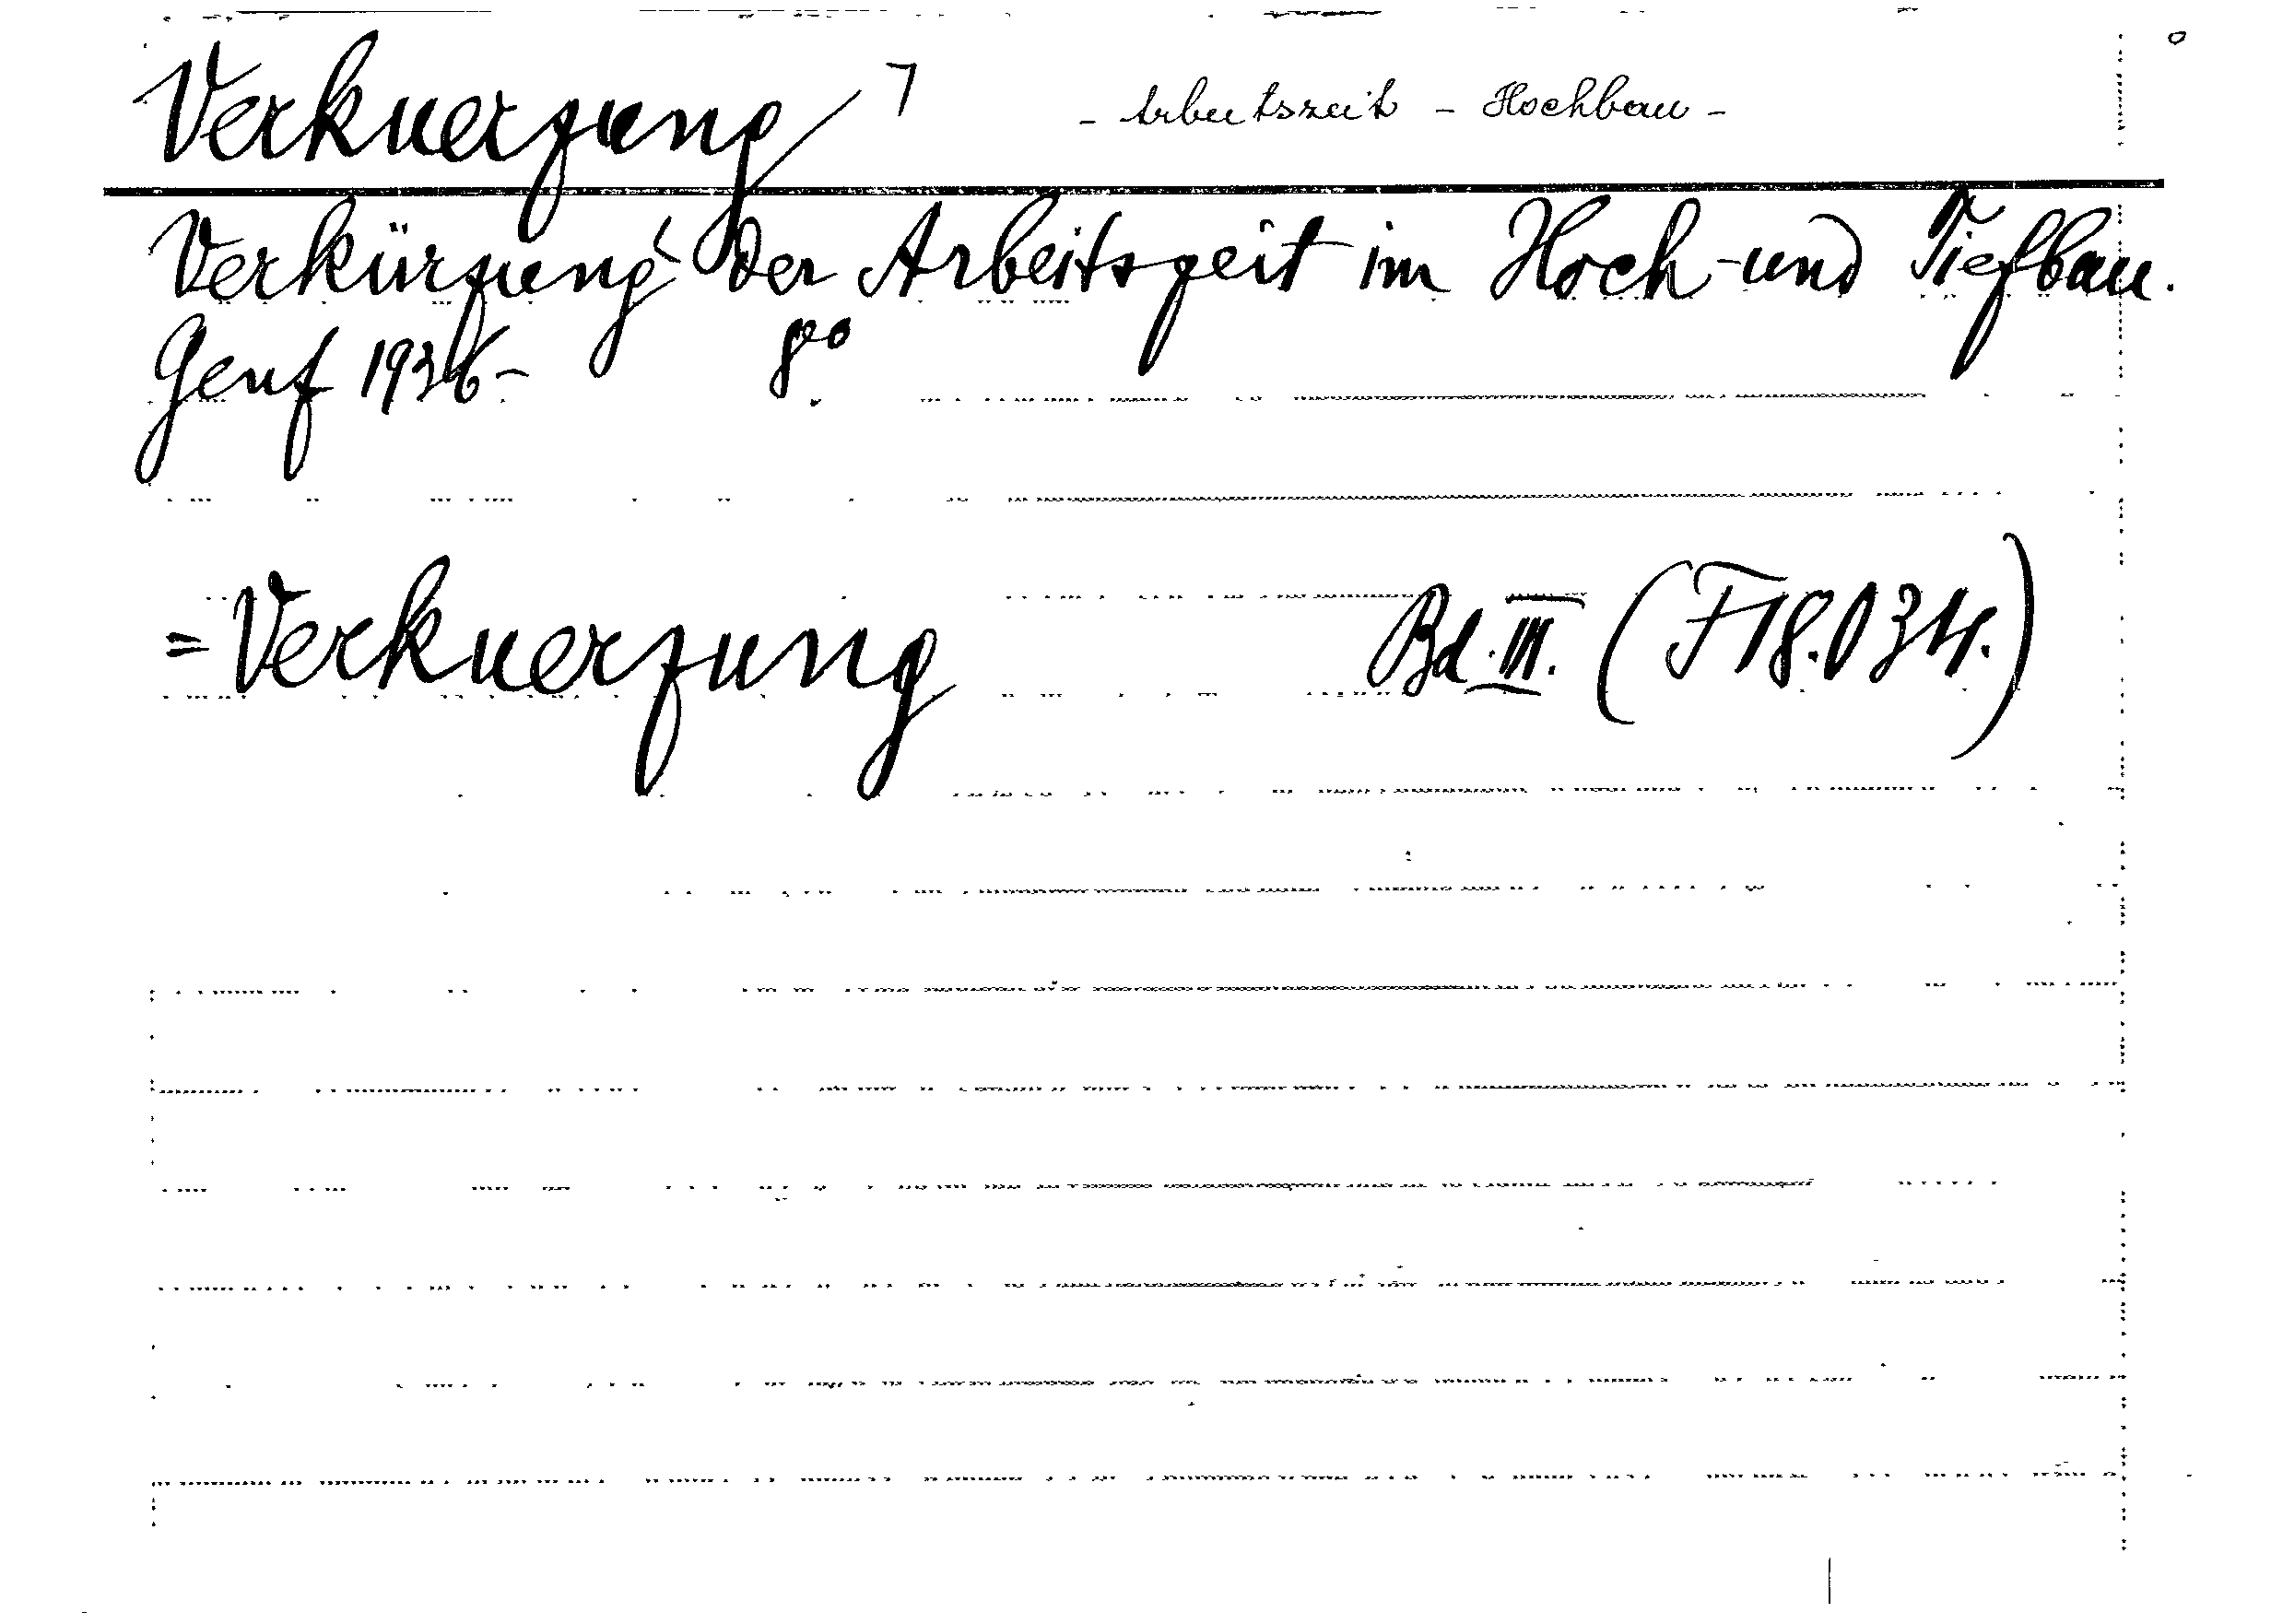 Verkuerzung 7 - Arbeitszeit - Hochbau -
Verkürzung der Arbeitszeit im Hoch-und Tiefbau.
Genf 1936- 8°°
=Verkuerzung Bd.III. (F18.034.)